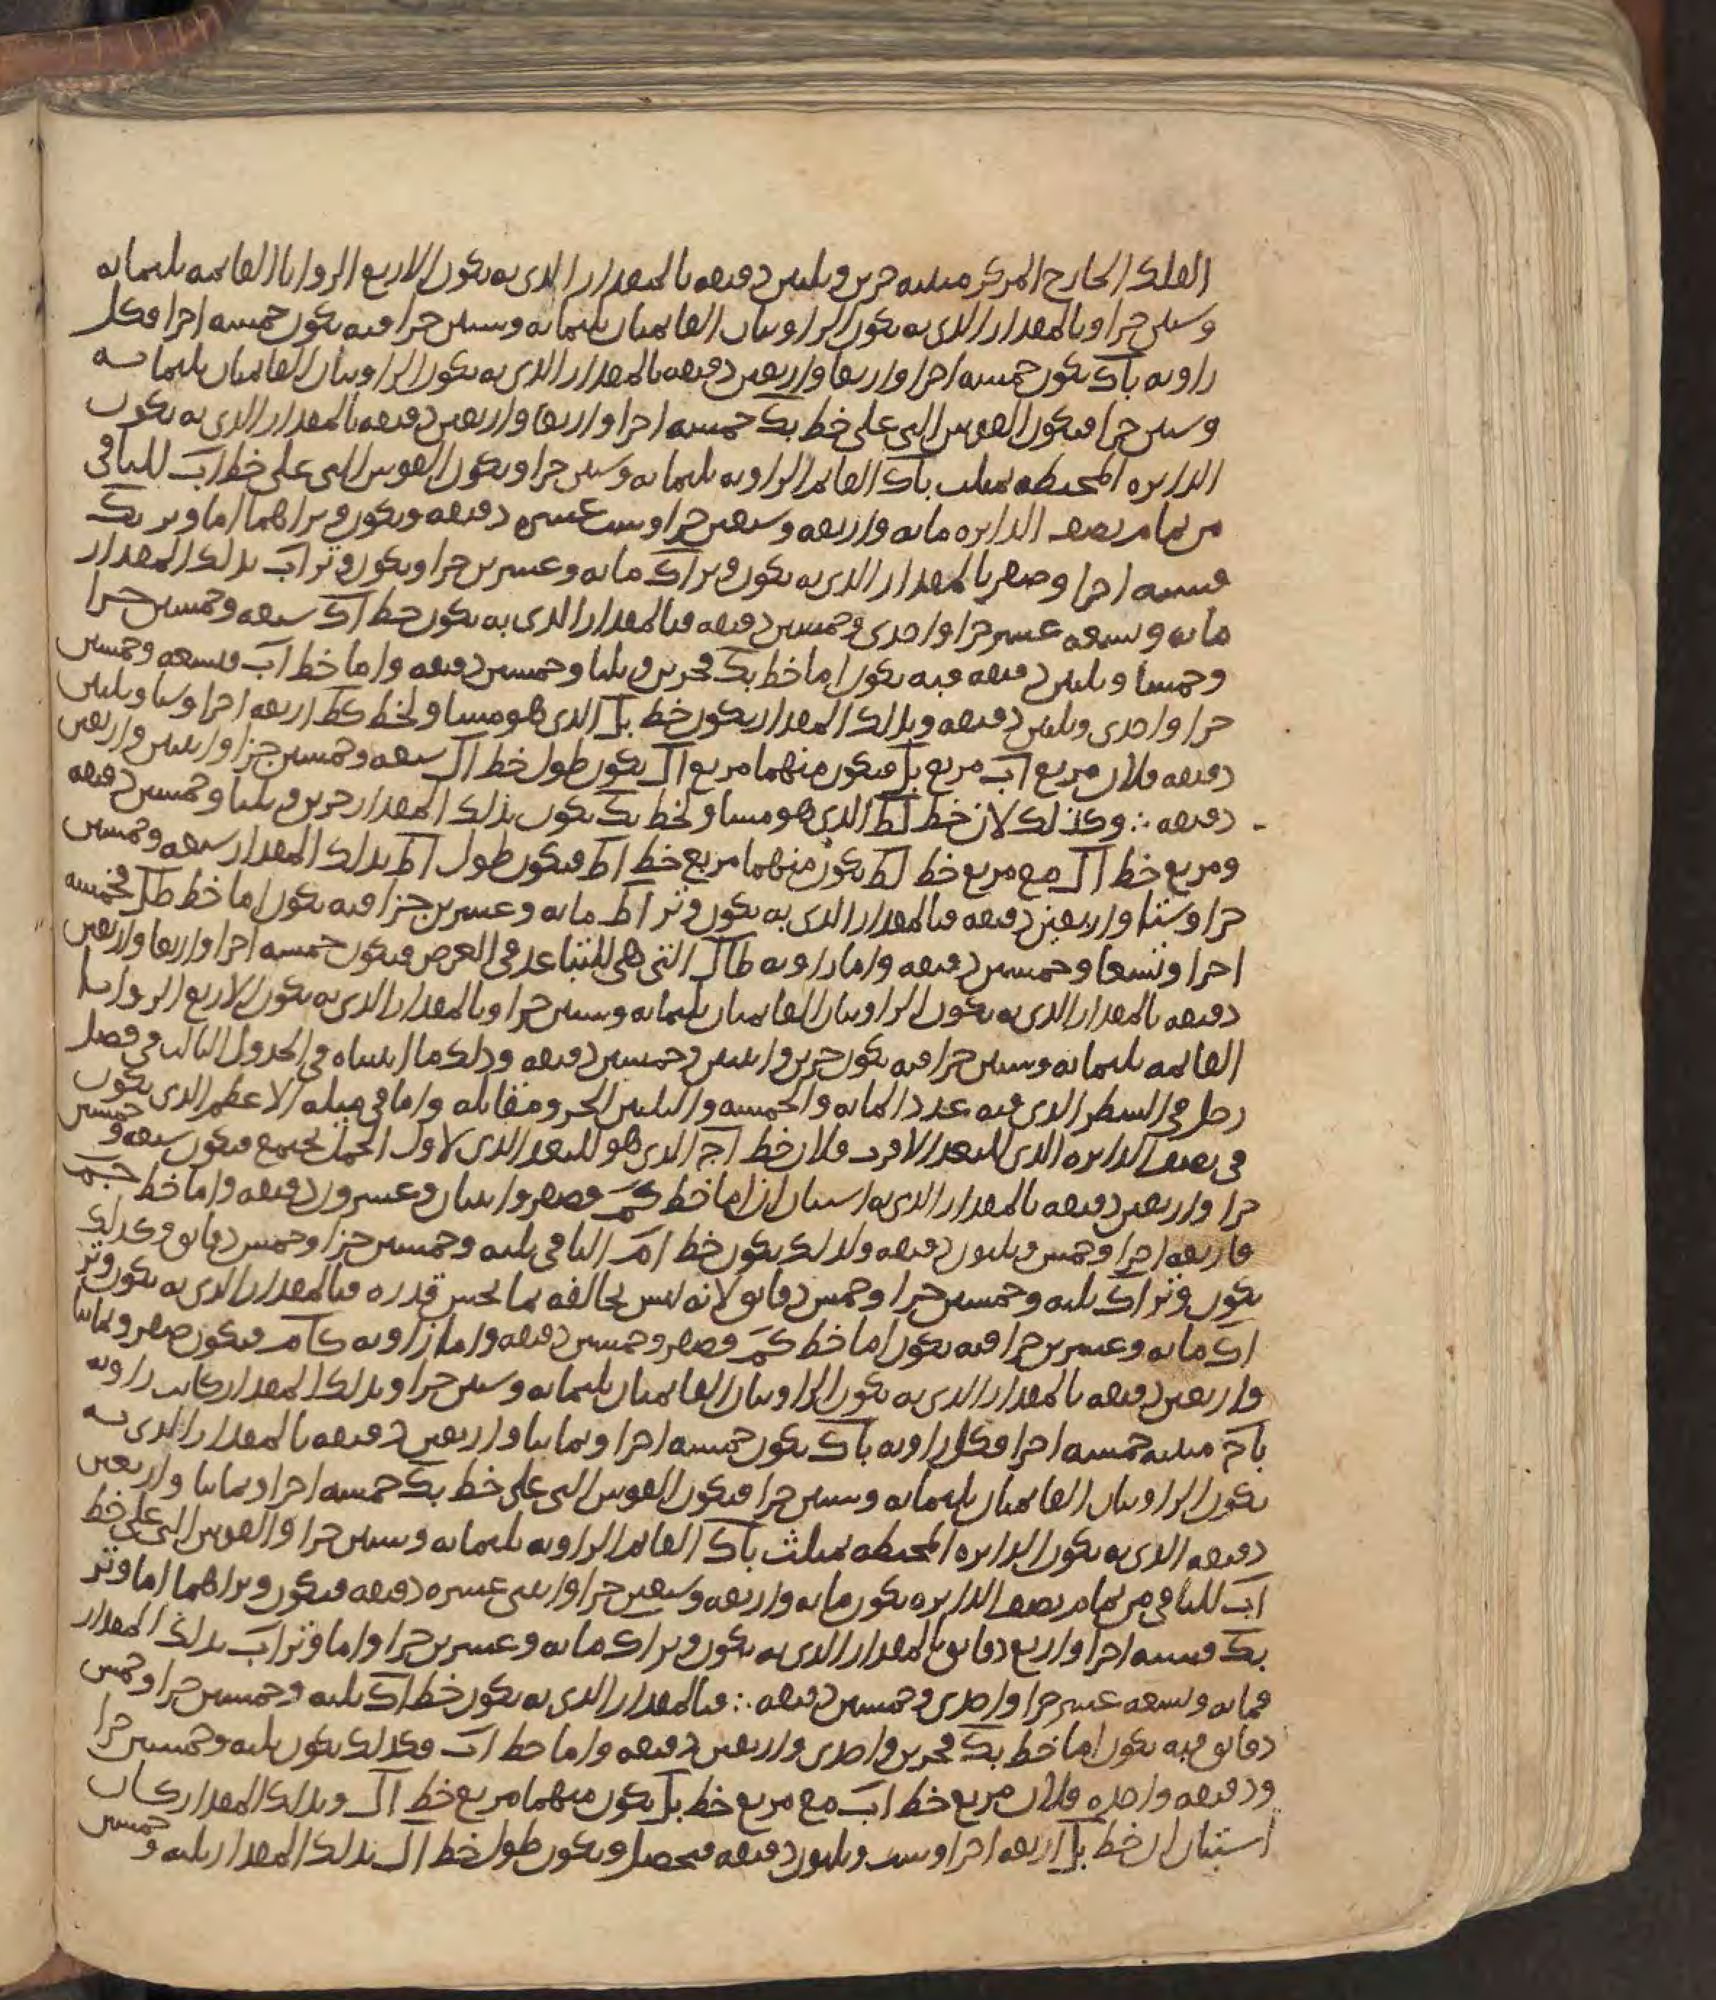 الفلك الخارج المركز مبلبه جزين وثلثين دقيقه بالمقدار الذى به تكون الاربع الزوايا القايمه ثلثمايه
وستين جزا وبالمقدار الذى به تكون الزاويتان القايمتان ثلثمايه وستين جزا فيه تكون خمسه اجزا فكل
زاويه باك تكون خمسه اجزا واربعا واربعين دقيقه بالمقدار الذى به تكون الزاويتان القايمتان ثلثمايه
وستين جزا فتكون القوس التى على خط بك خمسه اجزا واربعا واربعين دقيقه بالمقدار الذى به تكون
الدايره المحيطه بمثلث باك القايم الزاويه ثلثمايه وستين جزا وتكون القوس التى على خط اب للباقى
من تمام نصف الدايره مايه واربعه وسبعين جزا وست عشره دقيقه وتكون وتراهما اما وتر بك
فسته اجزا وصفر بالمقدار الذى به تكون وتر اك مايه وعشرين جزا وتكون وتر اب بذلك المقدار
مايه وتسعه عشر جزا واحدى وخمسين دقيقه فبالمقدار الذى به تكون خط اك تسعه وخمسين جزا
وخمسا وثلثين دقيقه فبه تكون اما خط بك فجزين وثلثا وخمسين دقيقه واما خط اب فتسعه وخمسين
جزا واحدى وثلثين دقيقه وبذلك المقدار يكون خط بل الذى هو مساو لخط كط اربعه اجزا وستا وثلثين
دقيقه فلان مربع اب مربع بل فيكون منهما مربع ال يكون طول خط ال تسعه وخمسين جزا واثنين واربعين
دقيقه ∴ وكذلك لان خط لط الذى هو مساو لخط بك يكون بذلك المقدار جزين وثلثا وخمسين دقيقه
ومربع خط ال مع مربع خط لط يكون منهما مربع خط اط فيكون طول اط بذلك المقدار تسعه وخمسين
جزا وستا واربعين دقيقه فبالمقدار الذى به يكون وتر اط مايه وعشرين جزا فبه يكون اما خط طل فخمسه
اجزا وتسعا وخمسين دقيقه واما زاويه طال التى هى للتباعد فى العرض فيكون خمسه اجزا واربعا واربعين
دقيقه بالمقدار الذى به تكون الزاويتان القايمتان ثلثمايه وستين جزا وبالمقدار الذى به تكون الاربع الزوايا
القايمه ثلثمايه وستين جزا فبه تكون جزين واثنين وخمسين دقيقه وذلك ما اثبتناه فى الجدول الثالث فى فصل
زحل فى السطر الذى فيه عدد المايه والخمسه والثلثين الجزو مقابله واما فى ميله الاعظم الذى يكون
فى نصف الدايره الذى للبعد الاقرب فلان خط اج الذى هو للبعد الذى لاول الحمل يجتمع فيكون سبعه وخمسين
جزا واربعين دقيقه بالمقدار الذى به استبان ان اما خط كم فصفر واثنان وعشرون دقيقه واما خط جم
فاربعه اجزا وخمس وثلثون دقيقه ولذلك يكون خط ام الباقى ثلثه وخمسين جزا وخمس دقايق وكذلك
يكون وتر اك ثلثه وخمسين جزا وخمس دقايق لانه ليس يخالفه بما يحس قدره فبالمقدار الذى به يكون وتر
اك مايه وعشرين جزا فبه يكون اما خط كم فصفر وخمسين دقيقه واما زاويه كام فيكون صفر وثمانيا
واربعين دقيقه بالمقدار الذى به تكون الزاويتان القايمتان ثلثمايه وستين جزا وبذلك المقدار كانت زاويه
باج مبلبه خمسه اجزا فكل زاويه باك تكون خمسه اجزا وثمانيا واربعين دقيقه بالمقدار الذى به
تكون الزاويتان القايمتان ثلثمايه وستين جزا فيكون القوس التى على خط بك خمسه اجزا وثمانيا واربعين
دقيقه الذى به يكون الدايره المحيطه بمثلث باك القايم الزاويه ثلثمايه وستين جزا والقوس التى على خط
اب للباقى من تمام نصف الدايره يكون مايه واربعه وسبعين جزا واثنى عشره دقيقه فيكون وتراهما اما وتر
بك فسته اجزا واربع دقايق بالمقدار الذى به يكون وتر اك مايه وعشرين جزا واما وتر اب بذلك المقدار
فمايه وتسعه عشر جزا واحدى وخمسين دقيقه ∴ فبالمقدار الذى به يكون خط اك ثلثه وخمسين جزا وخمس
دقايق فبه يكون اما خط بك فجزين واحدى واربعين دقيقه واما خط اب فكذلك يكون ثلثه وخمسين جزا
ودقيقه واحده فلان مربع خط اب مع مربع خط بل يكون منهما مربع خط ال وبذلك المقدار كان
استبان ان خط بل اربعه اجزا وست وثلثون دقيقه فيحصل ويكون طول خط ال بذلك المقدار ثلثه وخمسين